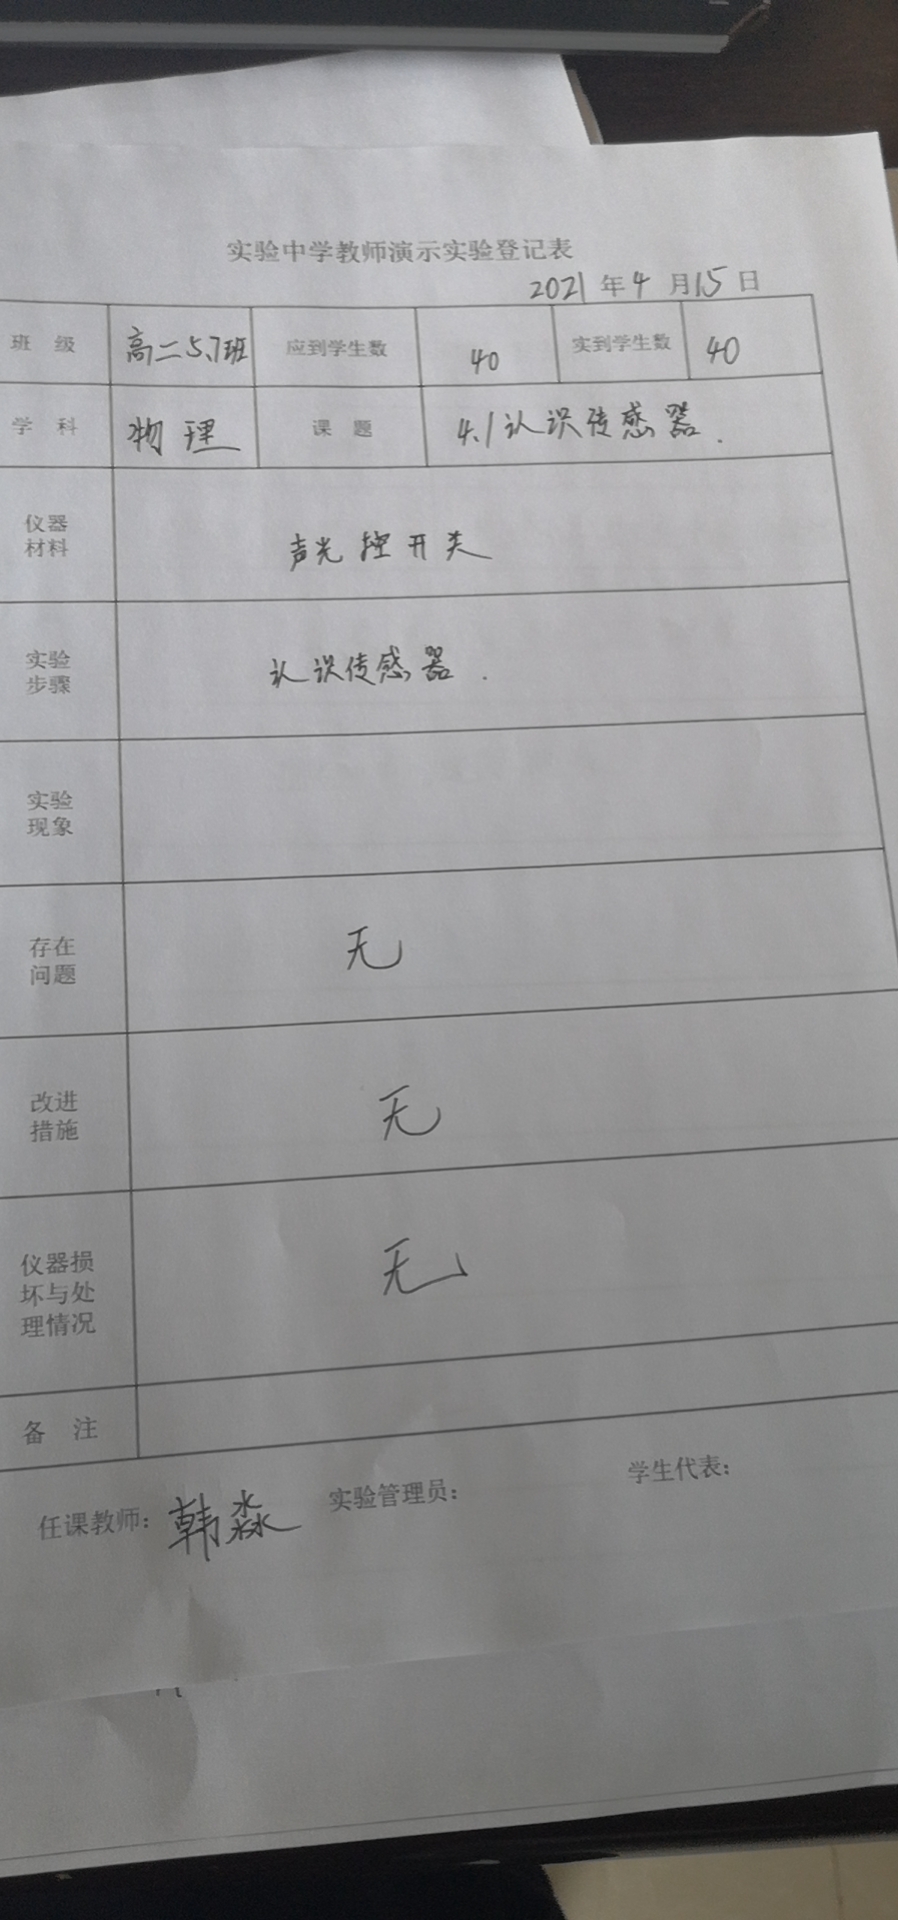 实验中学教师演示实验登记表
2021年4月15日
班级 高二5.7班 应到学生数 40 实到学生数 40
学科 物理 课题 4.1认识传感器.
仪器
材料
声光控开关
实验
步骤
认识传感器.
实验
现象
存在
问题
无
改进
措施
无
仪器损
坏与处
理情况
无
备注
任课教师：韩淼 实验管理员： 学生代表：